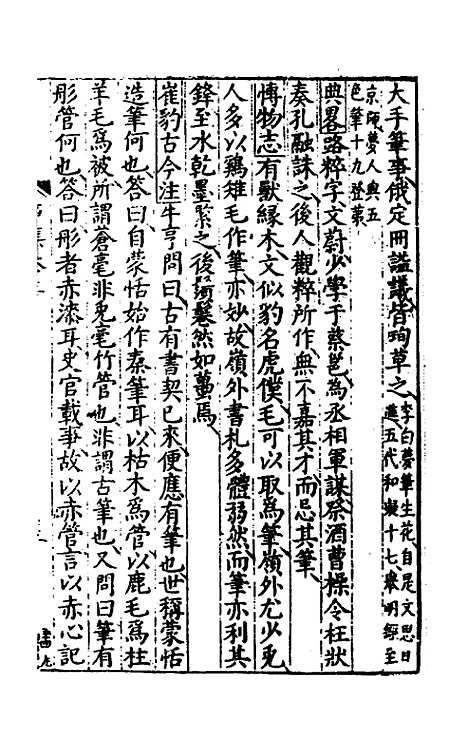 大手筆事俄定冊謚議皆珣草之李白夢筆生花自是文思日
進五代和凝十七舉明經至
京師夢人與五
色筆十九登第
典畧路粹字文蔚少學于蔡邕為丞相軍謀祭酒曹操令枉狀
奏孔融誅之後人觀粹所作無不嘉其才而忌其筆
博物志有獸緣木文似豹名虎僕毛可以取為筆嶺外尤少兎
人多以鷄雉毛作筆亦妙故嶺外書札多體弱然而筆亦利其
鋒至水乾墨緊之後鬅鬆然如蠆焉
崔豹古今注牛亨問曰古有書契已來便應有筆也世稱蒙恬
造筆何也答曰自蒙恬始作秦筆耳以枯木爲管以鹿毛爲柱
羊毛爲被所謂蒼毫非兎毫竹管也非謂古筆也又問曰筆有
彤管何也答曰彤者赤漆耳史官載事故以赤管言以赤心記